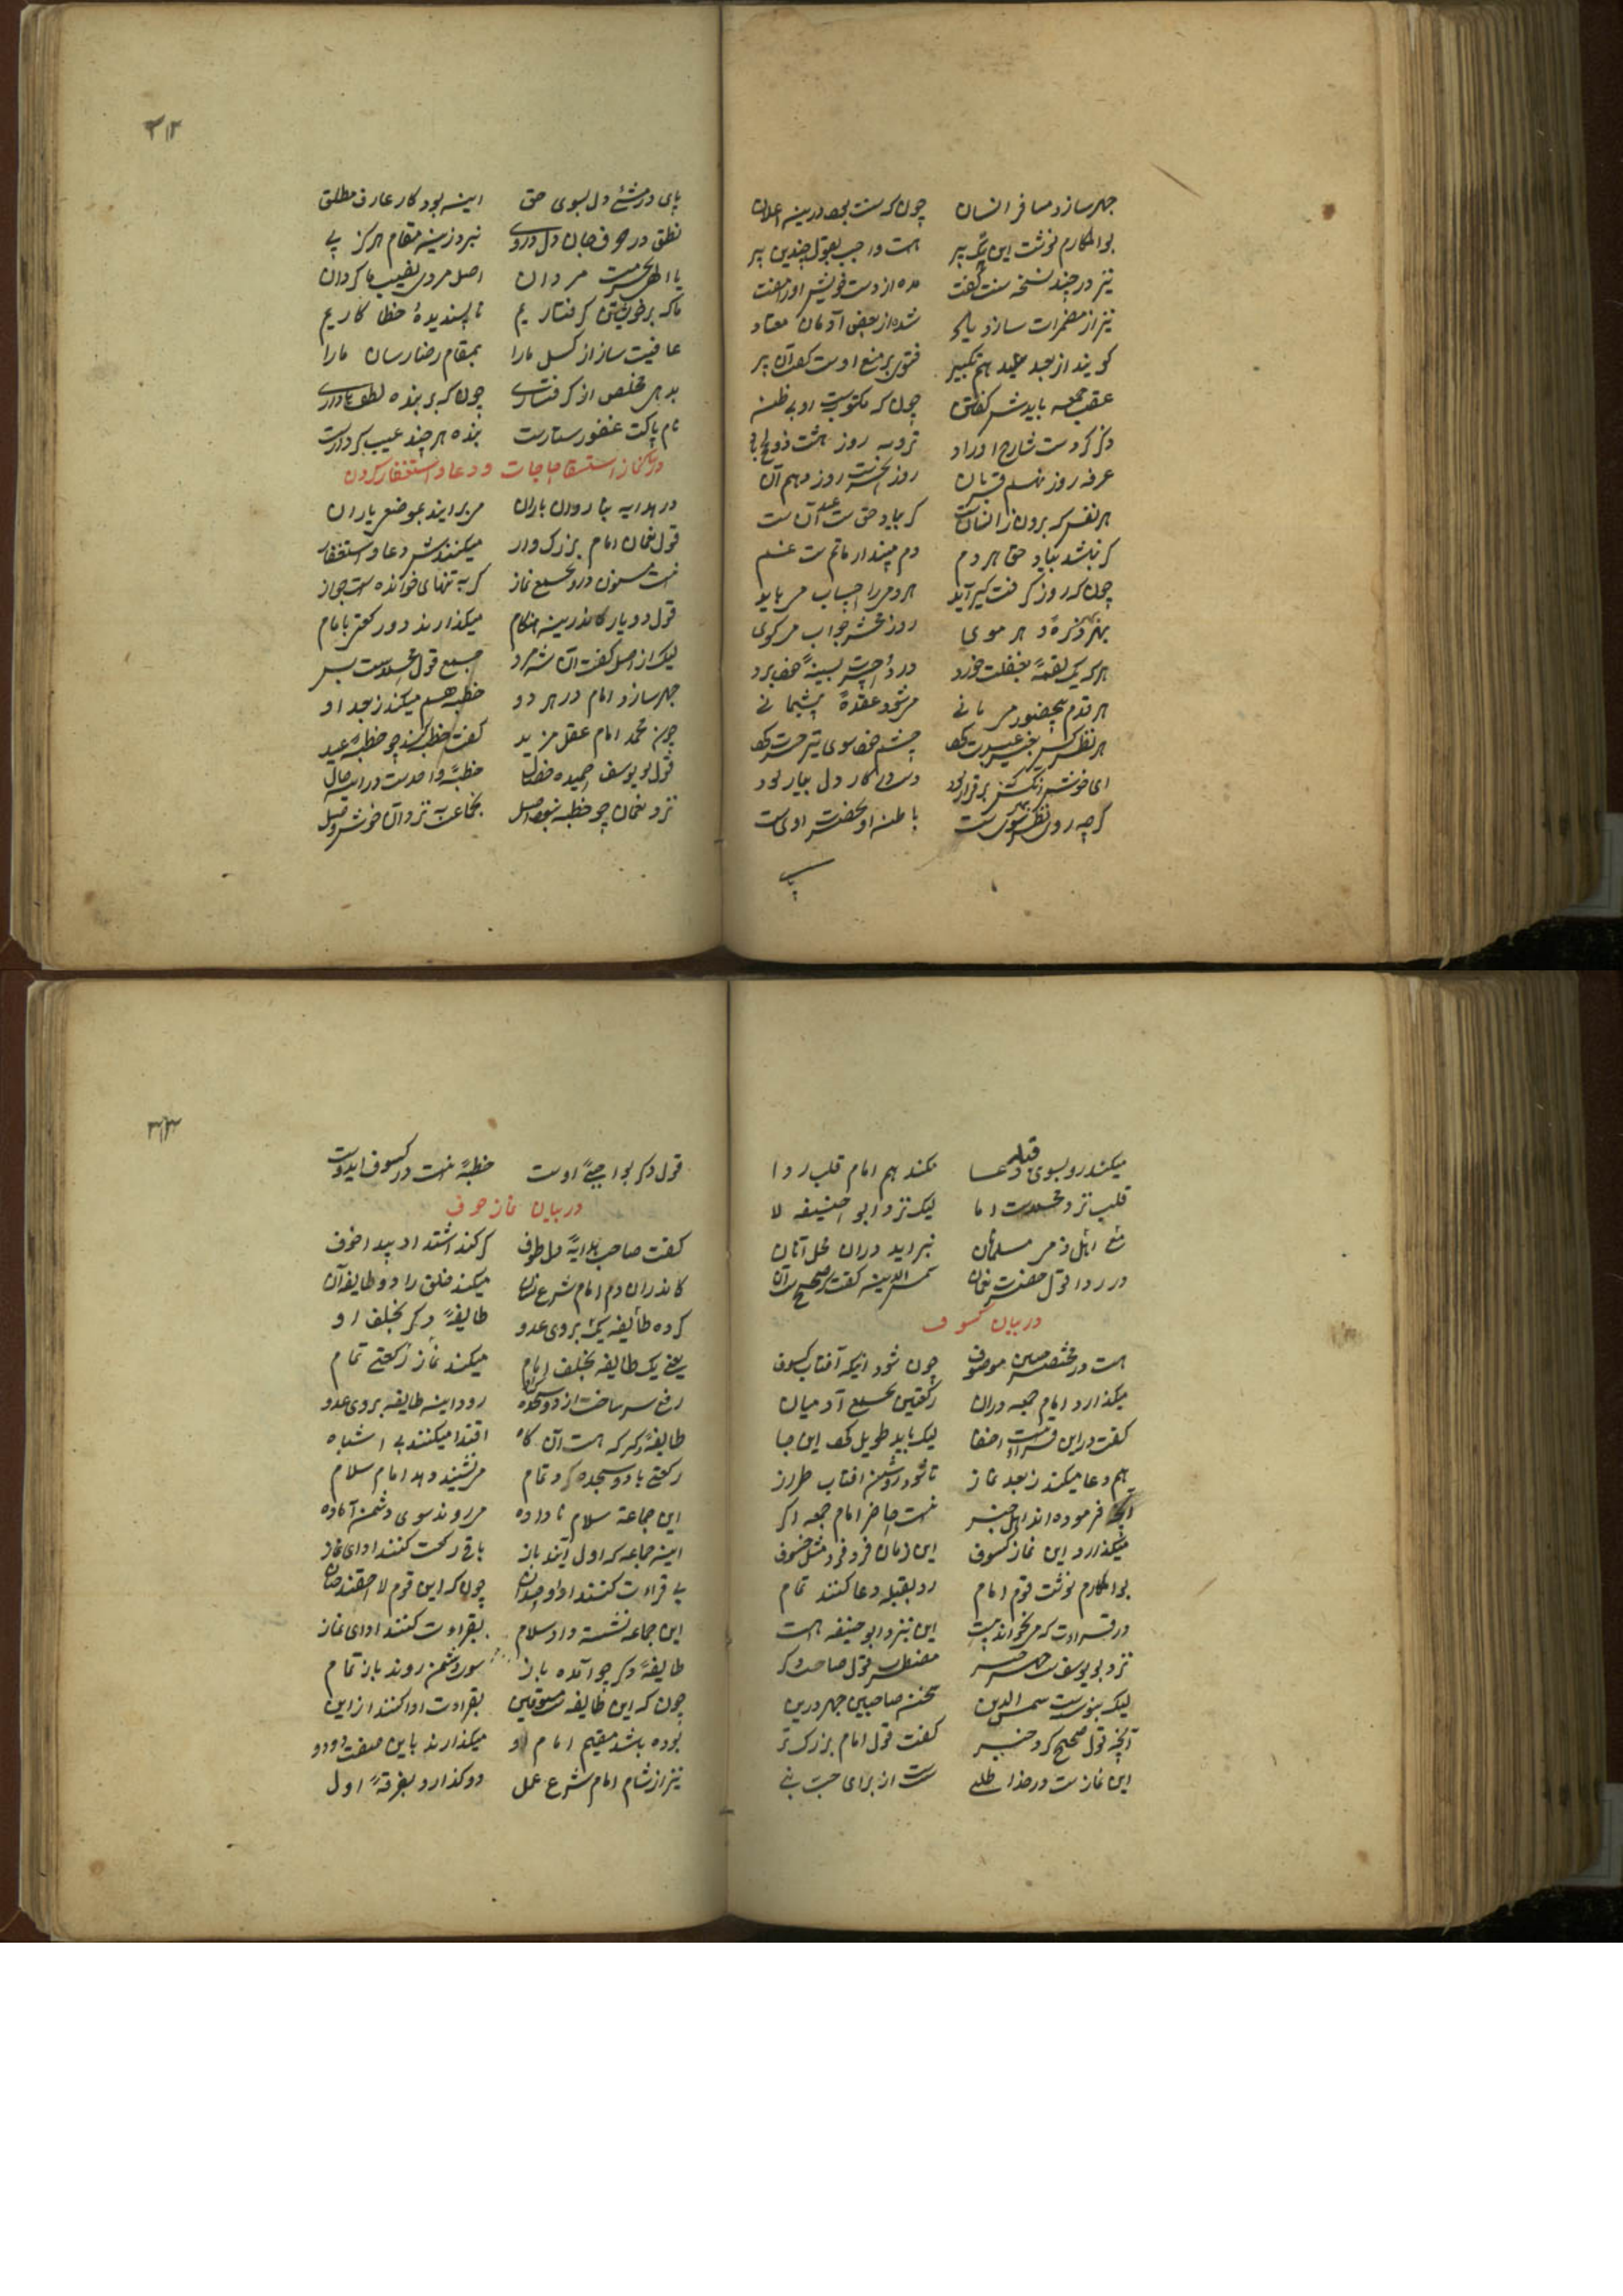 جهر سازد مسافر انسان چون که سنت بود درینه اعلان
بوالمکارم نوشت این تکبیر هست واجب بقول چندین پیر
نیز در چند نسخه سنت گفت مده از دست خویش اورا مفت
نیز از مضمرات سازد یاد شده از بعضی آدمان معتاد
گویند از بعد عید هم تکبیر فتوی بر منع اوست گفت آن پیر
عقب جمعه باید گفتن چون که مکتوبیست او بی ظن
ذکر کردست شارح اوراد ترویه روز هشت ذوالحج
عرفه روز نهم قربان روز النحرست روز دهم آن
هر نفس که برون ز انسانست گر بیاد حق ست عید آن ست
گر نباشد بیاد حق هر دم دم مپندار ماتم ست غم
چون که روز گرفت گیر آید هر دمی را حساب می باید
بهر ذره و هر موی روز محشر جواب می گوی
هر که یک لقمه بغفلت خورد درد حسرت بسینه خود برد
هر قدم بیحضور می مانی می شود عقده پشیمانی
هر نظر کش بغیر عبرت کرد چشم خود سوی تیر حسرت کرد
ای خوش آنکس بر قرار بود دست در کار دل بیار بود
گرچه روی نظر بهر سوی ست باطن او بحضرت اوست
پای
۳۱۲
پای در مشی دل بسوی حق اینه بود کار عارف مطلق
نطق در حرف جان دل در وی نبرد زینه مقام هرگز پی
یا الهی بحرمت مردان اصل مردی نصیب ما گردان
ما که بر خویشتن گرفتاریم ناپسندیده خطا کاریم
عافیت ساز از کسل مارا بمقام رضا رسان مارا
بدهی مخلص از گرفتاری چون که بر بنده لطفها داری
نام پاکت غفور ستارست بنده هر چند عیب کردارست
در بیان نماز استسقا حاجات و دعا و استغفار کردن
در هدایه بنا رودن باران می برایند بموضع یاران
قول نعمان امام بزرگ وار میکنندش دعا و استغفار
نیست مسنون درو بجمیع نماز گر به تنهای خوانده ست جواز
قول دو یار کاندرینه هنگام میگذارند دو رکعتی با امام
لیک از اصل گفت آن شه مرد قول محمدست بس
جهر سازد امام در هر دو خطبه هم میکند ز بعد او
چون محمد امام عقل مزید گفت خطبه کند چو خطبه عید
قول بو یوسف حمیده خصال خطبه واحدست در این حال
نزد نعمان چو خطبه نبود اصل بجماعت نزد آن خوش وصل
میکند رو بسوی قبله دعا نکند هم امام قلب ردا
قلب نزد محمدست اما لیک نزد ابو حنیفه لا
مع اهل ذمی مسلمان نبراید دران محل آنان
در ردا قول حضرت نعمان شمس الدینه گفت صحیح ست آن
در بیان کسوف
هست در مختصر همین موصوف چون شود آنکه آفتاب کسوف
میگذارد امام جمعه دران رکعتین بجمیع آدمیان
گفت در این قراءت اخفا لیک باید طویل کرد این جا
هم دعا میکند ز بعد نماز تا شود روشن آفتاب طراز
آنچه فرموده اند اهل خبر نیست حاضر امام جمعه اگر
میگذارد این نماز کسوف این زمان فرد فرد مثل خسوف
بوالمکارم نوشت قوم امام رو بقبله دعا کنند تمام
در قراءت که می خواند پست این بنزد ابو حنیفه هست
نزد بو یوسف ست قول صاحب دگر
لیک بنوشت شمس الدین سخن صاحبین جهر درین
آنچه قول صحیح کرد خبر گفت قول امام بزرگ تر
این نمازست در خدا طلبی ست از برای حب نبی
۳۱۳
قول دگر بواجبی اوست خطبه نیست در کسوف ایدوست
در بیان نماز خوف
گفت صاحب هدایه گر کند اشتداد پیدا خوف
کاندران دم امام شرع نشان میکند خلق را دو طایفه آن
کرده طایفه یکی بروی عدو طایفه دگر بخلف او
یعنی یک طایفه بخلف امام میکند نماز رکعتی تمام
رفع سر ساخت از دو سجده رود اینه طایفه بروی عدو
طایفه دگر که هست آن گاه اقتدا میکنند بی اشتباه
رکعتی با دو سجده کرد تمام می نشیند دهد امام سلام
این جماعة سلام نا داده می روند سوی دشمن آماده
اینه جماعه که اول آیند باز باقی رکعت کنند ادای نماز
بی قراءت کنند ادا چون که این قوم لاحقند
این جماعه نشسته داد سلام بقراءت کنند ادای نماز
طایفه دگر چو آمده باز سوی دشمن روند باز تمام
چون که این طایفه ست مسبوقین بقراءت ادا کنند از این
بوده باشد مقیم امام او میگذارند باین صفت دو دو
نیز از شام امام شرع عمل دو گذارد بفرقه اول